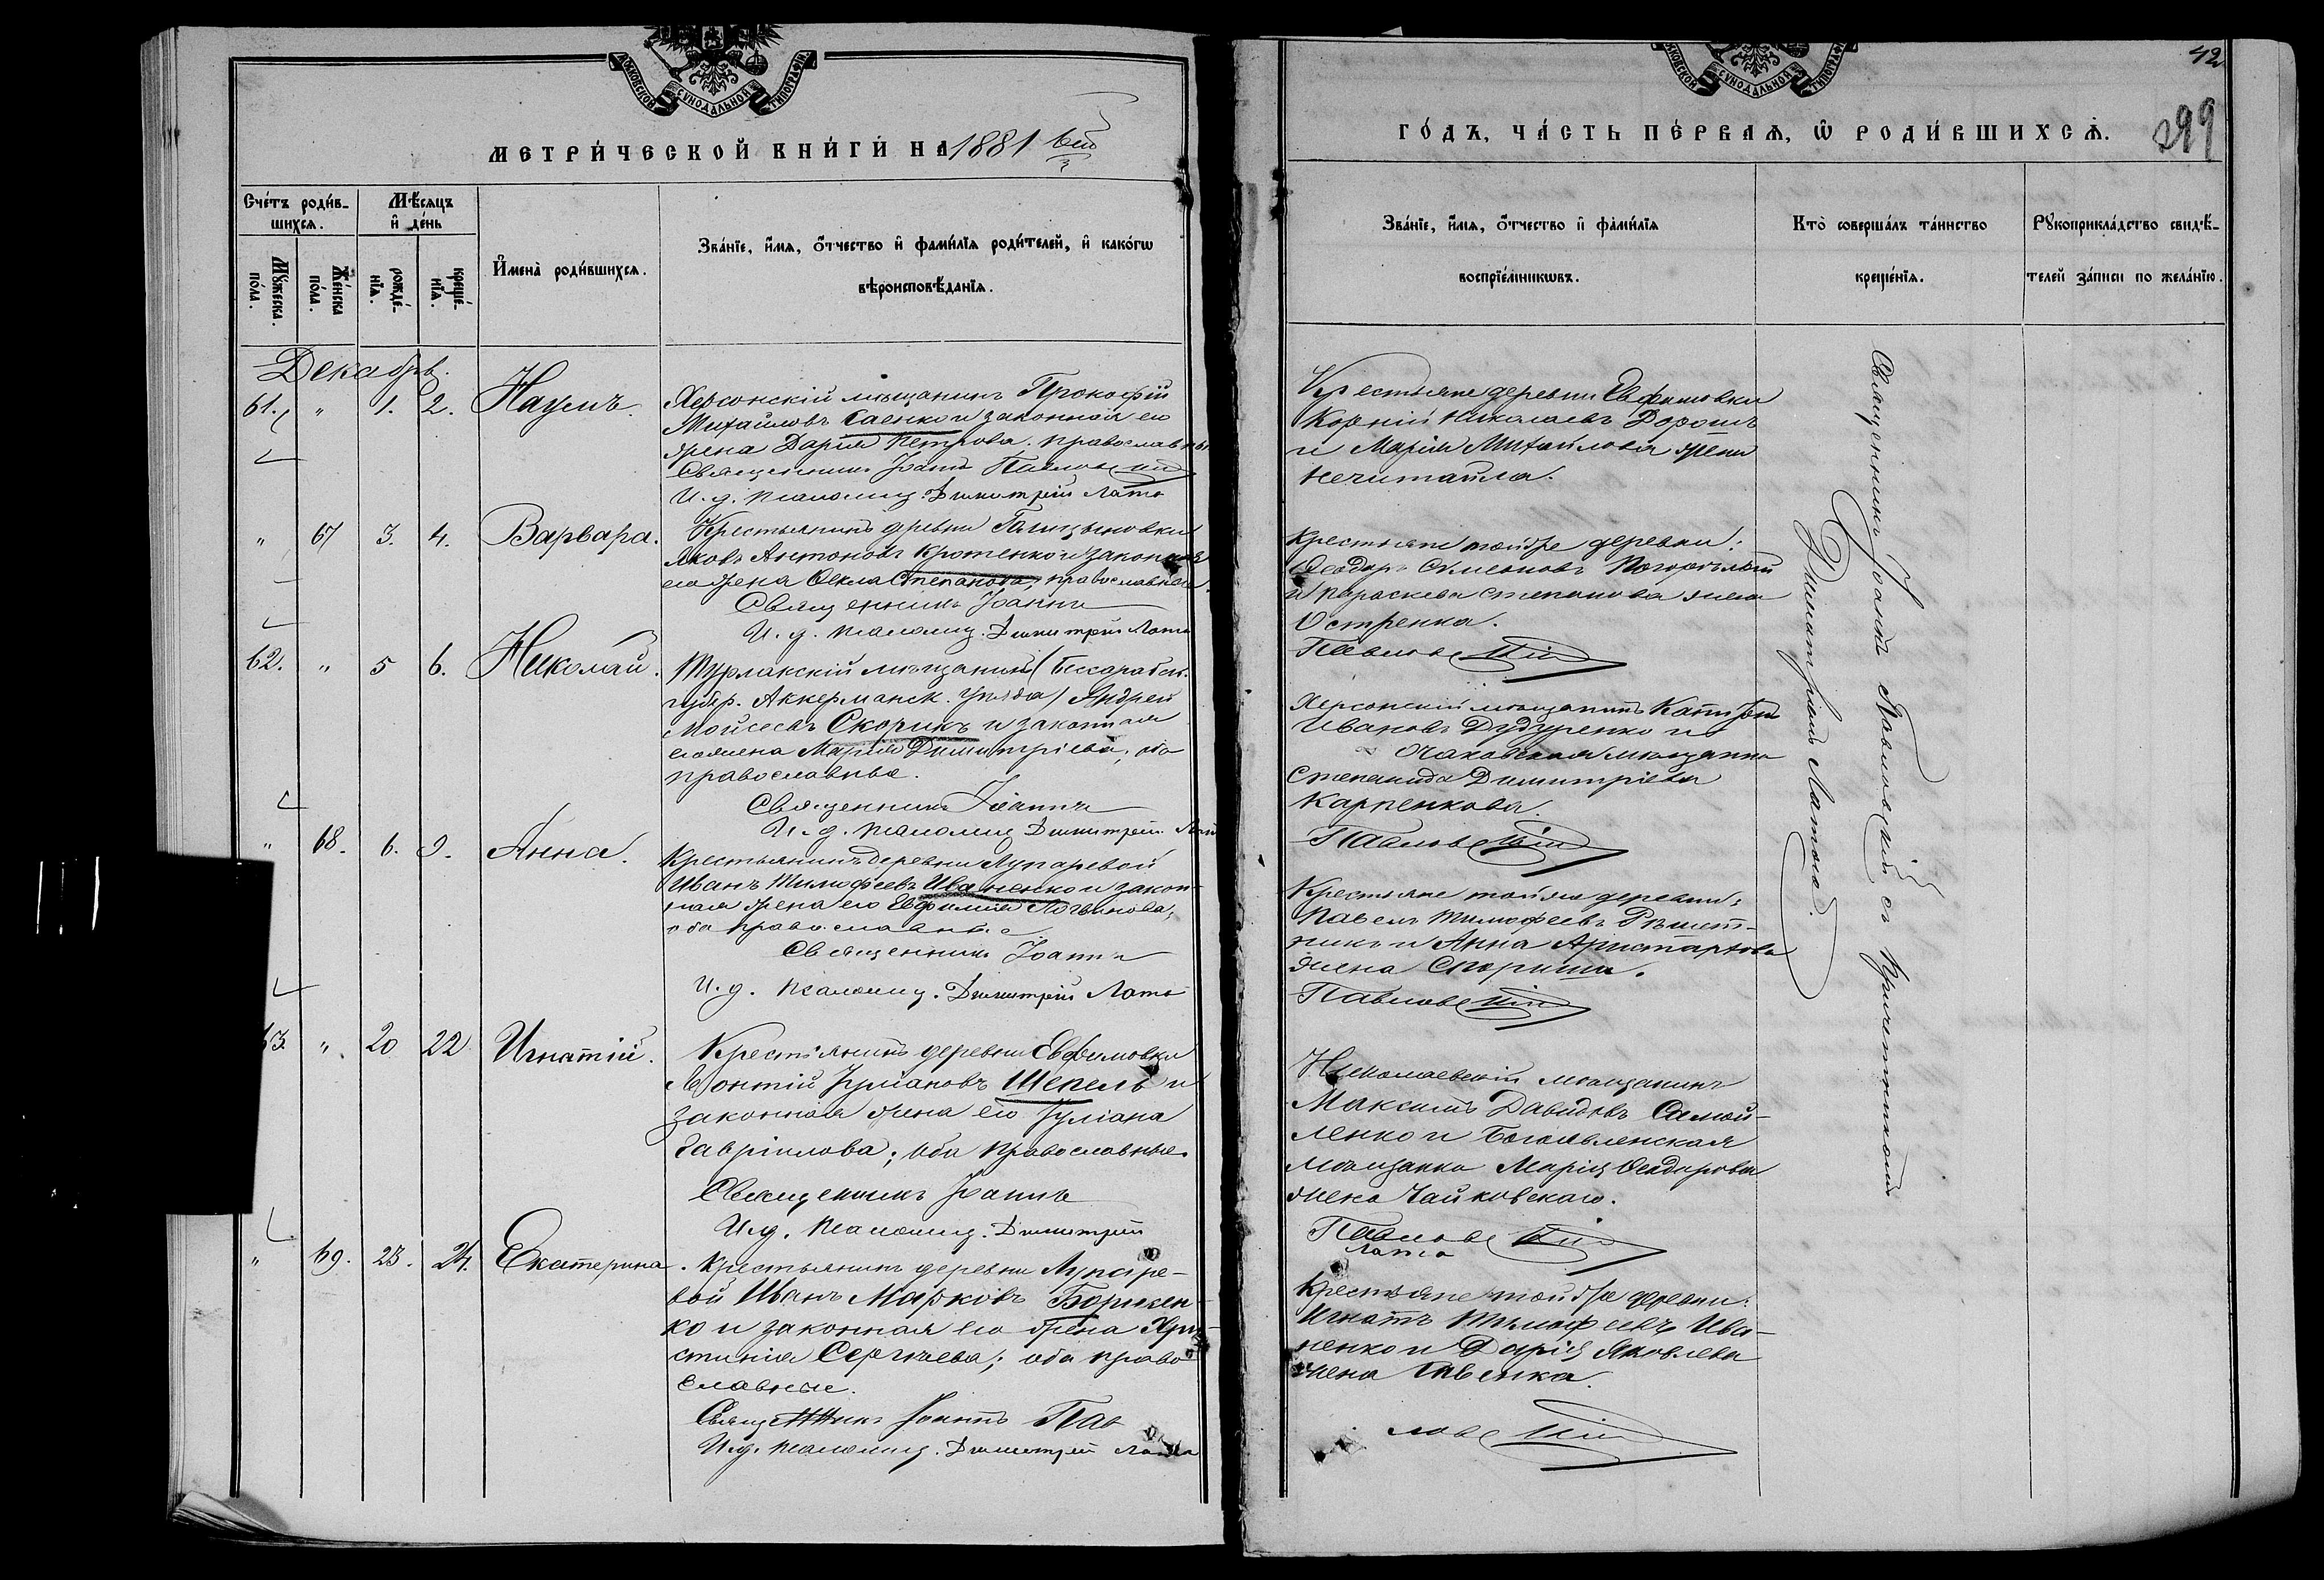 МОСКОВСКОЙ СУНОДАЛЬНОЙ ТИПОГРАФІИ
МЕТРИ́ЧЕСКОЙ КНИ́ГИ НА 1881 ый
Сче́тъ роди́в-
шихся.
Мѣ́сяцъ
и҆ де́нь
Мꙋ́жеска. по́ла.
Же́нска по́ла.
рожде́-
нїѧ.
креще́-
нїѧ.
И҆мена̀ роди́вшихся.
Зва́нїе, и҆́мя, о҆́тчество и҆ фами́лїя роди́телей, и҆ како́гѡ
вѣроисповѣ́данїя.
Декабрь.
61. " 1. 2. Наумъ.
Херсонскій мѣщанинъ Прокофій
Михайловъ Саенко и законная его
жена Дарія Петрова. православные
Священникъ Іоаннъ Павловскій
И. д. псаломщ. Димитрій Лато
" 67 3. 4. Варвара.
Крестьянинъ деревни Галицыновки
Яковъ Антоновъ Кротенко и законная
его жена Ѳекла Степанова, православные.
Священникъ Іоаннъ
И. д. псаломщ. Димитрій Лато
62. " 5 6. Николай.
Турлакскій мѣщанинъ (Бессарабск.
губер. Аккерманск. уѣзда) Андрей
Мойсеевъ Скорикъ и законная
его жена Марія Димитріева, оба
православные.
Священникъ Іоаннъ
И. д. псаломщ Димитрій Лато
" 68. 6. 9. Анна.
Крестьянинъ деревни Лупаревой
Иванъ Тимофеевъ Иваненко и закон-
ная жена его Евфимія Логвинова,
оба православные
Священникъ Іоаннъ
И. д. псаломщ. Димитрій Лато
63. " 20 22 Игнатій.
Крестьянинъ деревни Евфимовки
Леонтій Іуліановъ Шепель и
законная жена его Іуліана
Гавріилова; оба православные.
Священникъ Іоаннъ
И.д. псаломщ. Димитрій
" 69. 23. 24. Екатерина.
Крестьянинъ деревни Лупаре-
вой Иванъ Марковъ Борисен-
ко и законная его жена Хри-
стинія Сергѣева; оба право-
славные.
Священникъ Іоаннъ Пав
И.д. псаломщ. Димитрій Лато
МОСКОВСКОЙ СУНОДАЛЬНОЙ ТИПОГРАФІИ
42
299
ГО́ДЪ, ЧА́СТЬ ПЕ́РВАЯ, Ѿ РОДИ́ВШИХСЯ.
Зва́нїе, и҆́мя, о҆́тчество и҆ фами́лїя
воспрїе́мникѡвъ.
Кто̀ соверша́лъ та́инство
креще́нїя.
Рꙋкоприкла́дство свидѣ́-
телей за́писи по жела́нїю.
Крестьяне деревни Евфимовки
Корній Николаевъ Дорошъ
и Марія Михайлова жена
Нечитайла.
Крестьяне тойже деревни:
Ѳеодоръ Симеоновъ Погорѣлый
и Параскева Степанова жена
Остренка.
Павловскій
Херсонскій мѣщанинъ Капитонъ
Ивановъ Дудуренко и
Очаковская мѣщанка
Степанида Димитріева
Карпенкова.
Павловскій
Крестьяне тойже деревни:
Павелъ Тимофеевъ Рѣшет-
никъ и Анна Аристархова
жена Спориша.
Павловскій
Николаевскій мѣщанинъ
Максимъ Давидовъ Самой-
ленко и Богоявленская
мѣщанка Марія Ѳеодорова
жена Чайковскаго.
Павловскій
Лато
Крестьяне тойже деревни:
Игнатъ Тимофеевъ Ива-
ненко и Дарія Яковлева
жена
ловскій
Священникъ Іоаннъ Павловскій съ причетникомъ
Димитріемъ Латою.